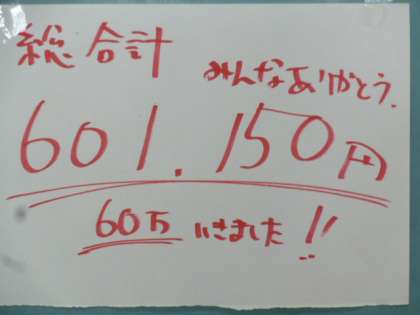 総合計
みんなありがとう.
601.150円
60万 いきました!!